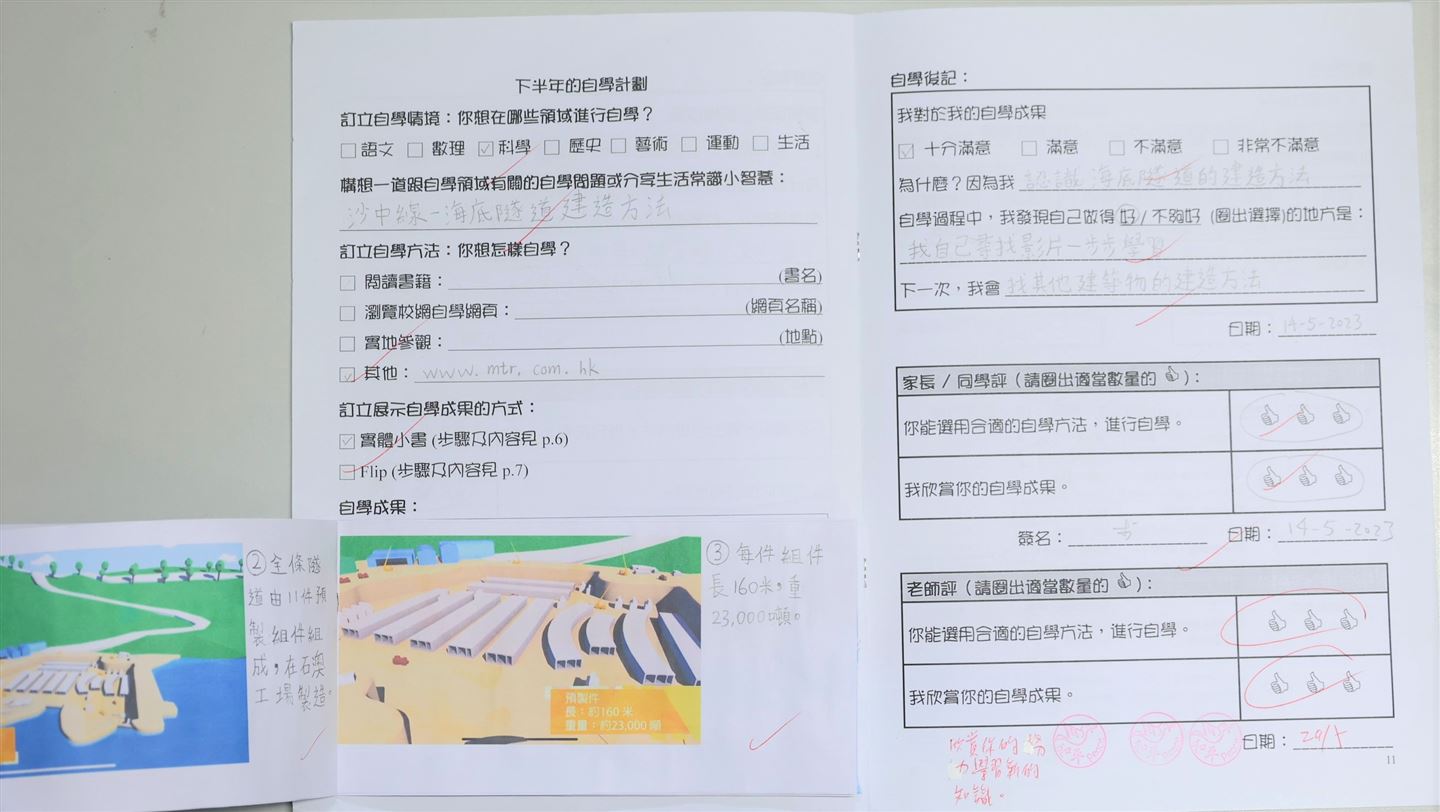 下半年的自學計劃
訂立自學情境：你想在哪些領域進行自學？
□語文 □數理 ☑科學 □歷史 □藝術 □運動 □生活
構想一道跟自學領域有關的自學問題或分享生活常識小智慧：
沙中線-海底隧道建造方法
訂立自學方法：你想怎樣自學？
□ 閱讀書籍：(書名)
□ 瀏覽校網自學網頁：(網頁名稱)
□ 實地參觀：(地點)
☑ 其他：www.mtr.com.hk
訂立展示自學成果的方式：
☑ 實體小書 (步驟及內容見 p.6)
□ Flip (步驟及內容見 p.7)
自學成果：
②全條隧
道由11件預
製組件組
成，在石澳
工場製造。
③每件組件
長160米，重
23,000噸。
預製件
長：約160 米
重量：約23,000 噸
自學後記：
我對於我的自學成果
☑ 十分滿意 □ 滿意 □ 不滿意 □ 非常不滿意
為什麼？因為我 認識海底隧道的建造方法
自學過程中，我發現自己做得 好 / 不夠好 (圈出選擇)的地方是：
我自己尋找影片一步步學習
下一次，我會 找其他建築物的建造方法
日期：14-5-2023
家長 / 同學評（請圈出適當數量的 👍）：
你能選用合適的自學方法，進行自學。
我欣賞你的自學成果。
簽名： 日期：14-5-2023
老師評（請圈出適當數量的 👍）：
你能選用合適的自學方法，進行自學。
我欣賞你的自學成果。
日期：29/5
欣賞你的努
力學習新的
知識。
11